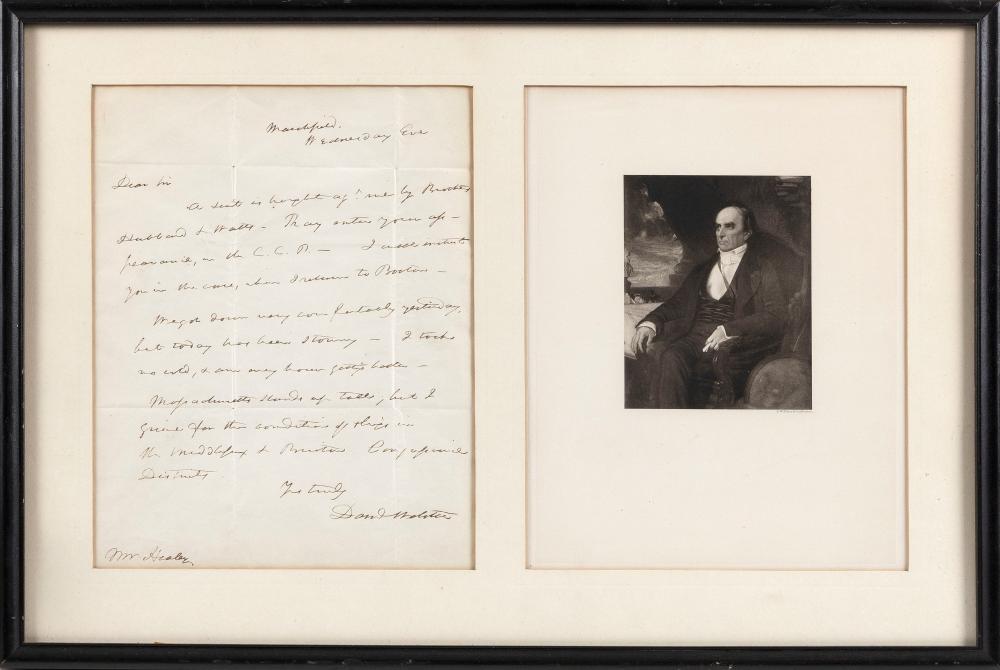 Marshfield.
Wednesday Eve
Dear Sir
A suit is brought agt me by Brooks
Hubbard & Watts - Pray enter your ap-
pearance, in the C. C. P. - I will instruct
you in the case, when I return to Boston -
We got down very comfortably yesterday,
but today has been stormy - I took
no cold, & am every hour getting better -
Massachusetts stands up tall, but I
grieve for the condition of things in
the Middlesex & Bristol Congressional
Districts
Yrs truly
Danl Webster
Mr. Healey.